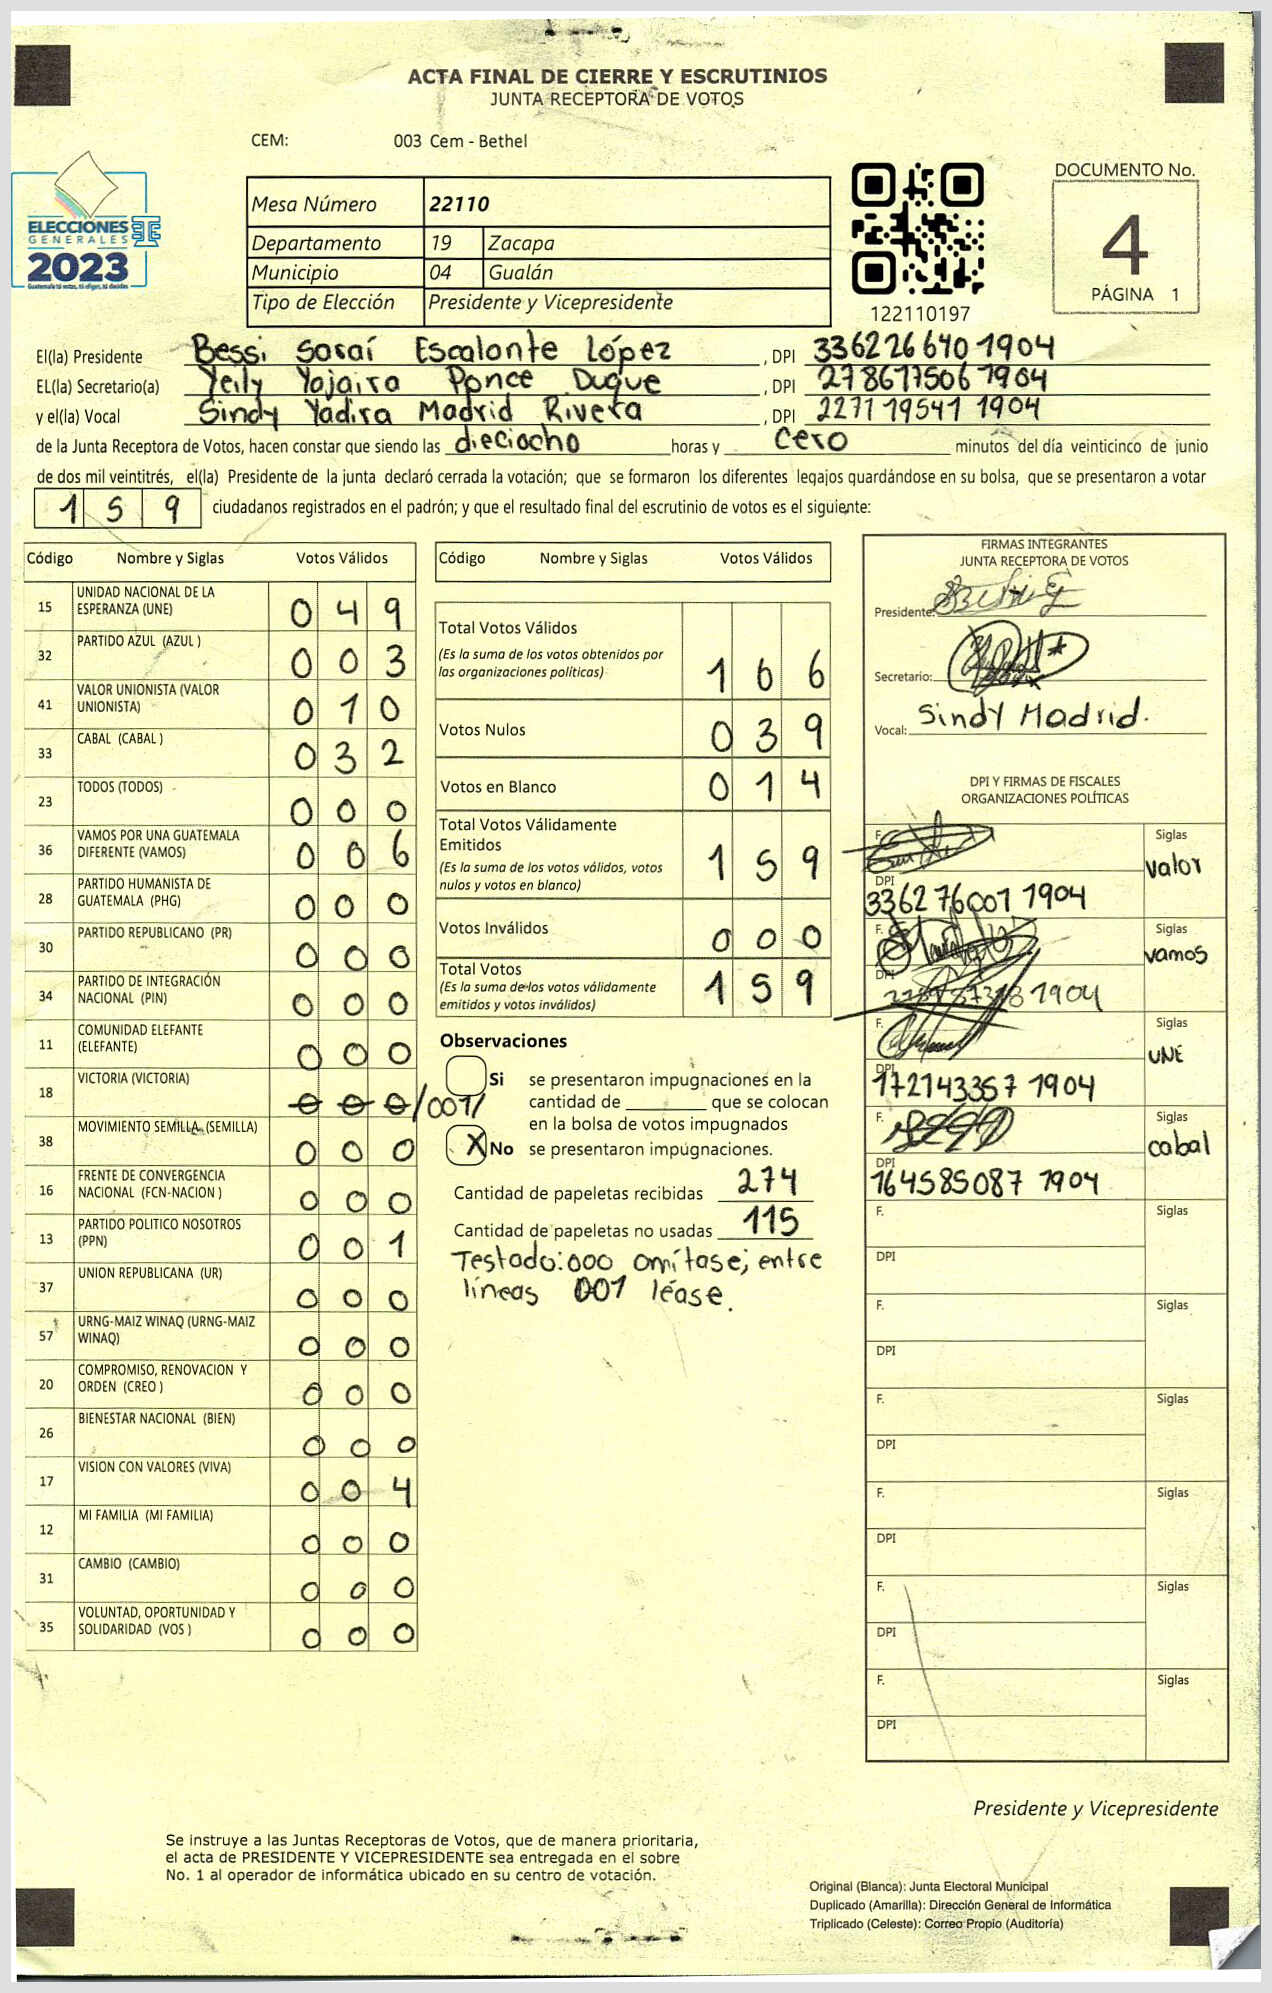 ACTA FINAL DE CIERRE Y ESCRUTINIOS
JUNTA RECEPTORA DE VOTOS
CEM: 003 Cem - Bethel
ELECCIONES
GENERALES
2023
Guatemala tú votas, tú eliges, tú decides
Mesa Número 22110
Departamento 19 Zacapa
Municipio 04 Gualán
Tipo de Elección Presidente y Vicepresidente
122110197
DOCUMENTO No.
4
PÁGINA 1
El(la) Presidente Bessi Saraí Escalante López, DPI 336226640 1904
EL(la) Secretario(a) Yeily Yajaira Ponce Duque, DPI 278617506 1904
y el(la) Vocal Sindy Yadira Madrid Rivera, DPI 227119541 1904
de la Junta Receptora de Votos, hacen constar que siendo las dieciocho horas y cero minutos del día veinticinco de junio
de dos mil veintitrés, el(la) Presidente de la junta declaró cerrada la votación; que se formaron los diferentes legajos guardándose en su bolsa, que se presentaron a votar
159 ciudadanos registrados en el padrón; y que el resultado final del escrutinio de votos es el siguiente:
Código Nombre y Siglas Votos Válidos
15 UNIDAD NACIONAL DE LA ESPERANZA (UNE) 0 4 9
32 PARTIDO AZUL (AZUL ) 0 0 3
41 VALOR UNIONISTA (VALOR UNIONISTA) 0 1 0
33 CABAL (CABAL ) 0 3 2
23 TODOS (TODOS) 0 0 0
36 VAMOS POR UNA GUATEMALA DIFERENTE (VAMOS) 0 0 6
28 PARTIDO HUMANISTA DE GUATEMALA (PHG) 0 0 0
30 PARTIDO REPUBLICANO (PR) 0 0 0
34 PARTIDO DE INTEGRACIÓN NACIONAL (PIN) 0 0 0
11 COMUNIDAD ELEFANTE (ELEFANTE) 0 0 0
18 VICTORIA (VICTORIA) 0 0 0 /001/
38 MOVIMIENTO SEMILLA (SEMILLA) 0 0 0
16 FRENTE DE CONVERGENCIA NACIONAL (FCN-NACION ) 0 0 0
13 PARTIDO POLITICO NOSOTROS (PPN) 0 0 1
37 UNION REPUBLICANA (UR) 0 0 0
57 URNG-MAIZ WINAQ (URNG-MAIZ WINAQ) 0 0 0
20 COMPROMISO, RENOVACION Y ORDEN (CREO ) 0 0 0
26 BIENESTAR NACIONAL (BIEN) 0 0 0
17 VISION CON VALORES (VIVA) 0 0 4
12 MI FAMILIA (MI FAMILIA) 0 0 0
31 CAMBIO (CAMBIO) 0 0 0
35 VOLUNTAD, OPORTUNIDAD Y SOLIDARIDAD (VOS ) 0 0 0
Código Nombre y Siglas Votos Válidos
Total Votos Válidos
(Es la suma de los votos obtenidos por
las organizaciones políticas) 1 6 6
Votos Nulos 0 3 9
Votos en Blanco 0 1 4
Total Votos Válidamente
Emitidos
(Es la suma de los votos válidos, votos
nulos y votos en blanco) 1 5 9
Votos Inválidos 0 0 0
Total Votos
(Es la suma de los votos válidamente
emitidos y votos inválidos) 1 5 9
Observaciones
Si se presentaron impugnaciones en la
cantidad de ________ que se colocan
en la bolsa de votos impugnados
X No se presentaron impugnaciones.
Cantidad de papeletas recibidas 274
Cantidad de papeletas no usadas 115
Testado: 000 omítase; entre
líneas 001 léase.
FIRMAS INTEGRANTES
JUNTA RECEPTORA DE VOTOS
Presidente:
Secretario:
Vocal: Sindy Madrid.
DPI Y FIRMAS DE FISCALES
ORGANIZACIONES POLÍTICAS
F. Siglas
valor
DPI
336276001 1904
F. Siglas
vamos
DPI
1904
F. Siglas
UNE
DPI
172143357 1904
F. Siglas
cabal
DPI
164585087 1904
F. Siglas
DPI
F. Siglas
DPI
F. Siglas
DPI
F. Siglas
DPI
F. Siglas
DPI
F. Siglas
DPI
Presidente y Vicepresidente
Se instruye a las Juntas Receptoras de Votos, que de manera prioritaria,
el acta de PRESIDENTE Y VICEPRESIDENTE sea entregada en el sobre
No. 1 al operador de informática ubicado en su centro de votación.
Original (Blanca): Junta Electoral Municipal
Duplicado (Amarilla): Dirección General de Informática
Triplicado (Celeste): Correo Propio (Auditoría)